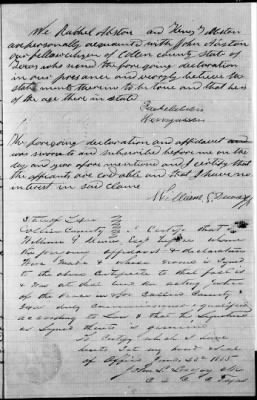 We Rachel Alston and Henry Alston
are personally acquainted with John Alston
our fellow citizen of Collin County State of
Texas who send the foregoing declaration
in our presence and verily believe the
statements therein to be true and that he is
of the age there in stated

The foregoing declaration and affidavit and
was sworn to and subscribed before me on the
day and year afore mentioned and I certify that
the affiants are credable and that I have no
interest in said claim
William G

State of Texas
Collin County I Certify that
William G Esqr before whom
the foregoing affidavit & declaration
were made & whose name is signed
to the above Certificate to that fact is
& was at that time an acting Justice
of the Peace in & for Collin County &
was duly Commissioned & qualified
according to Law & that his Signature
as signed thereto is genuine
To Certify which I have
hereto Set my hand & Seal
of Office June 20th 1855
John L
C C C C Texas